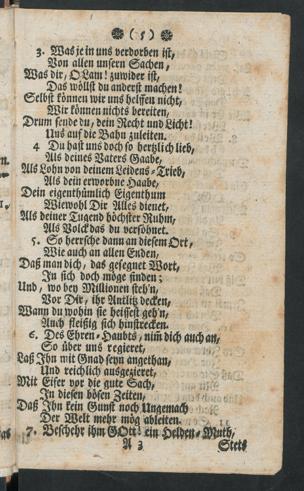 ❁ ( 5 ) ❁
3. Was je in uns verdorben ist,
Von allen unsern Sachen,
Was dir, O Lam! zuwider ist,
Das wöllst du anderst machen!
Selbst können wir uns helffen nicht,
Wir können nichts bereiten,
Drum sende du, dein Recht und Licht!
Uns auf die Bahn zuleiten.
4 Du hast uns doch so hertzlich lieb,
Als deines Vaters Gaabe,
Als Lohn von deinem Leidens-Trieb,
Als dein erworbne Haabe,
Dein eigenthümlich Eigenthum
Wiewohl Dir Alles dienet,
Als deiner Tugend höchster Ruhm,
Als Volck das du versöhnet.
5. So herrsche dann an diesem Ort,
Wie auch an allen Enden,
Daß man dich, das gesegnet Wort,
In sich doch möge finden;
Und, wo bey Millionen steh'n,
Vor Dir, ihr Antlitz decken,
Wann du wohin sie heissest geh'n,
Auch fleißig sich hinstrecken.
6. Des Ehren-Haubts, nim̃ dich auch an,
So über uns regieret,
Laß Ihn mit Gnad seyn angethan,
Und reichlich ausgezieret,
Mit Eifer vor die gute Sach,
In diesen bösen Zeiten,
Daß Ihn kein Gunst noch Ungemach
Der Welt mehr mög ableiten.
7. Beschehr ihm GOtt ein Helden-Muth,
A 3 Stets